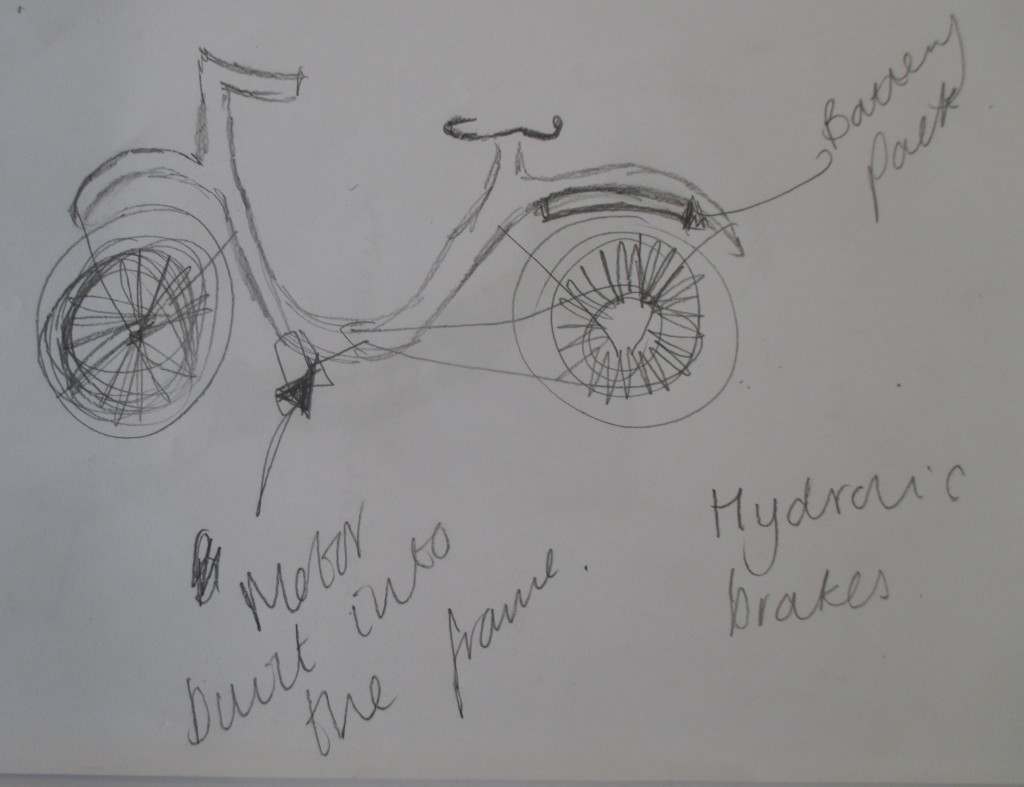 Battery
Pack
Motor
built into
the frame.
Hydraulic
brakes